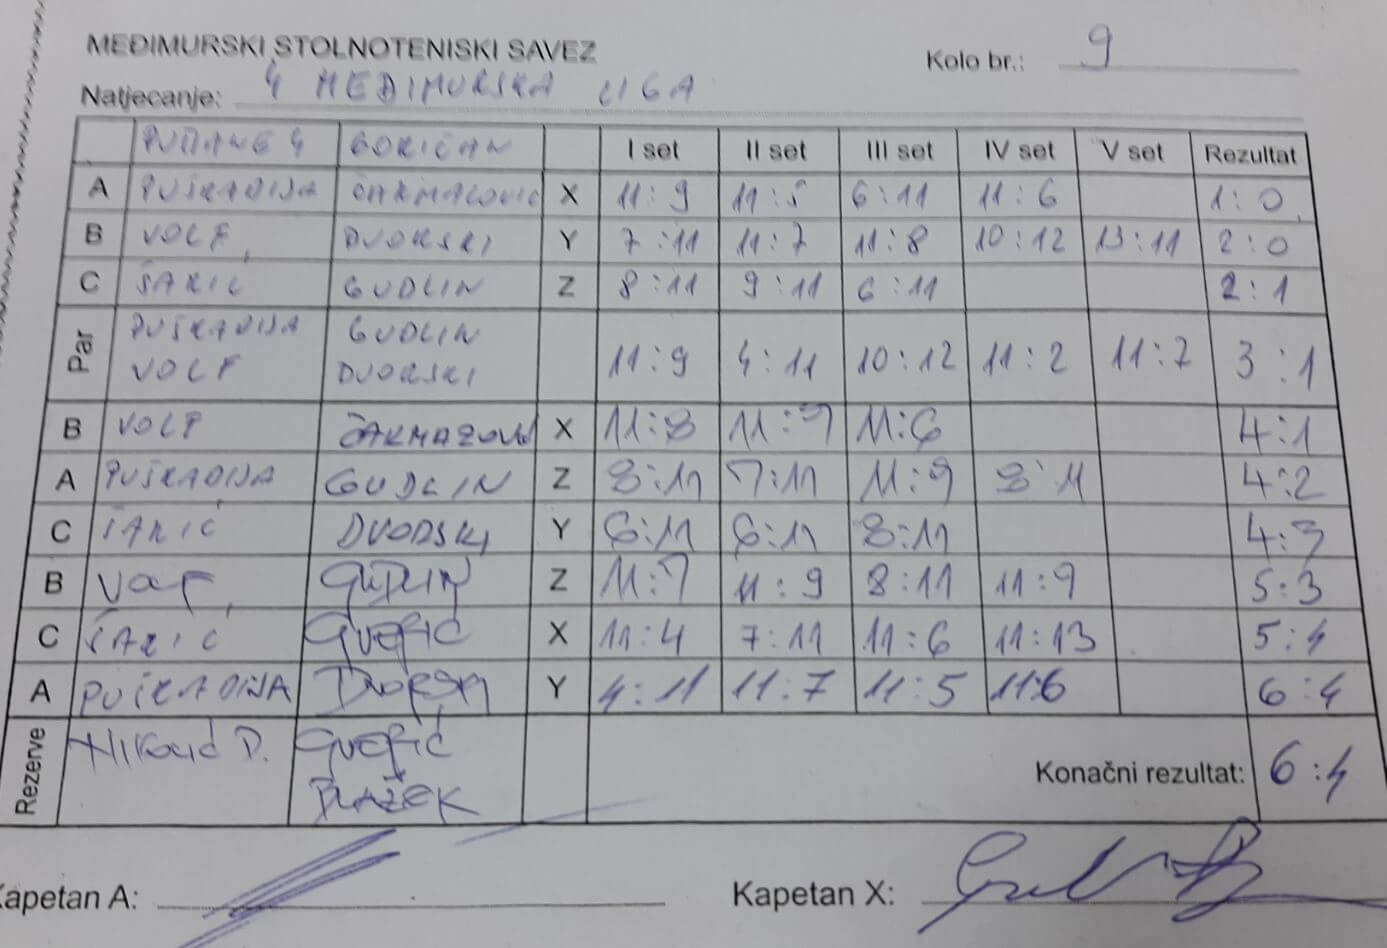 MEĐIMURSKI STOLNOTENISKI SAVEZ
Kolo br.: 9
Natjecanje: 4 MEĐIMURSKA LIGA
4 GORIČAN I set II set III set IV set V set Rezultat
A PUŠKADIJA X 11:9 11:5 6:11 11:6 1:0
B VOLF DVORSKI Y 7:11 11:7 11:8 10:12 13:11 2:0
C ŠARIĆ GUDLIN Z 8:11 9:11 6:11 2:1
Par PUŠKADIJA VOLF GUDLIN DVORSKI 11:9 4:11 10:12 11:2 11:7 3:1
B VOLF X 11:8 11:9 11:6 4:1
A PUŠKADIJA GUDLIN Z 8:11 7:11 11:9 8:11 4:2
C ŠARIĆ DVORSKI Y 6:11 6:11 8:11 4:3
B VOLF GUDLIN Z 11:7 11:9 8:11 11:9 5:3
C ŠARIĆ X 11:4 7:11 11:6 11:13 5:4
A PUŠKADIJA DVORSKI Y 4:11 11:7 11:5 11:6 6:4
Rezerve BLAŽEK
Konačni rezultat: 6:4
Kapetan A:
Kapetan X: